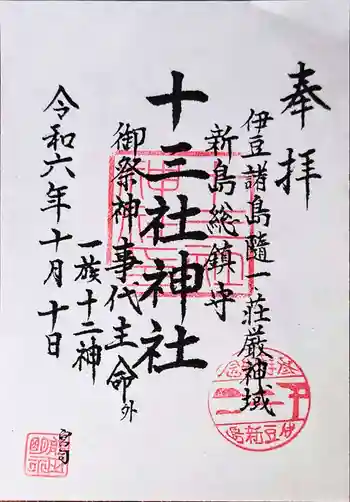 奉拝
伊豆諸島隨一荘厳神域
新島総鎮守
十三社神社
御祭神 事代主命外
一族十二神
令和六年十月十日
宮司